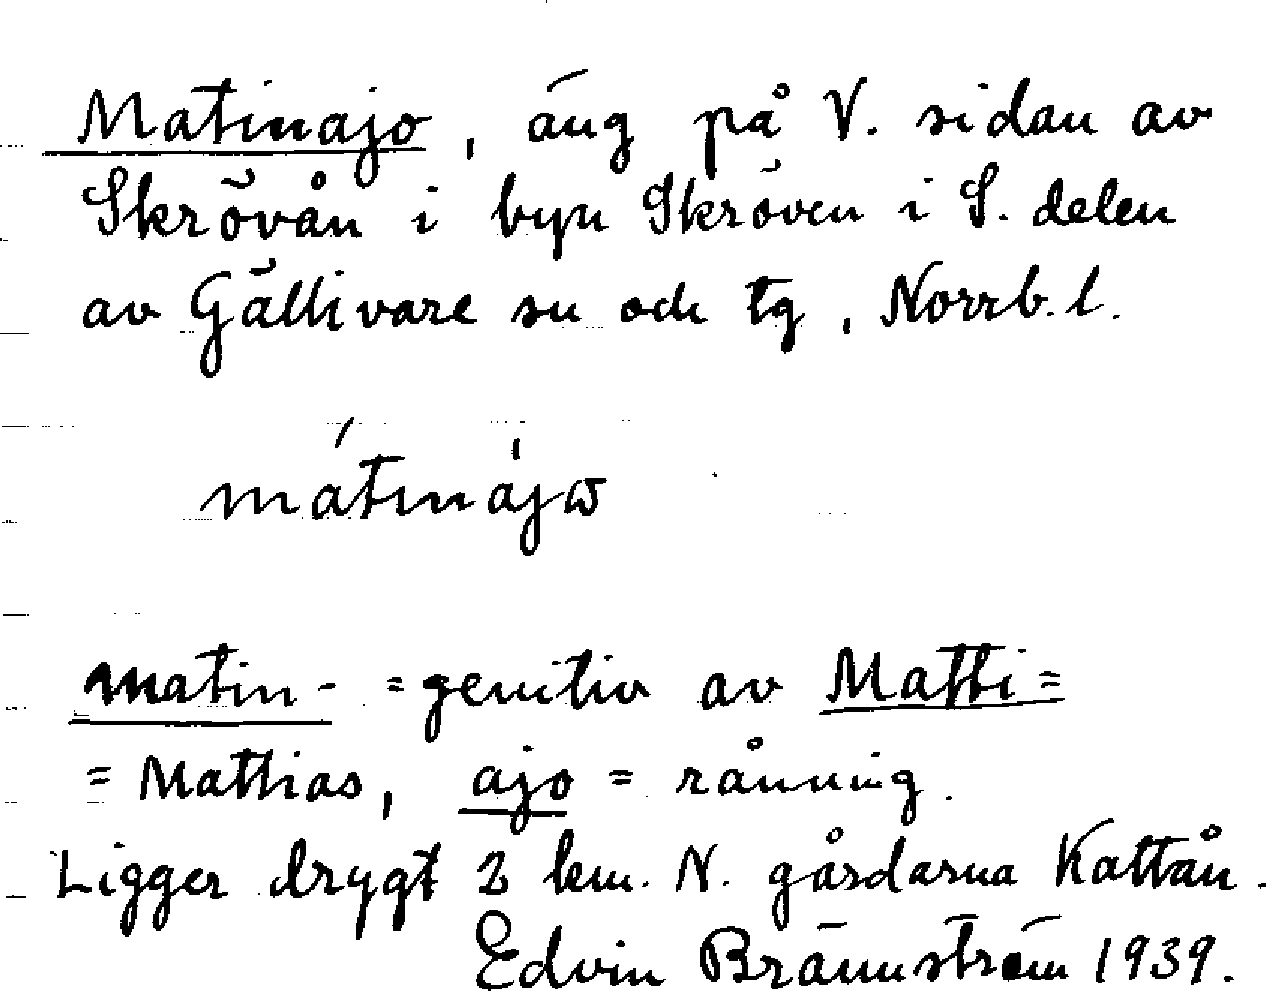 Matinajo, äng på V. sidan av
Skrövån i byn Skröven i S. delen
av Gällivare sn och tg, Norrb. l.
mátinàjω
matin- = genitiv av Matti =
= Mathias, ajo = rånning.
Ligger drygt 2 km. N. gårdarna Kattån.
Edvin Brännström 1939.